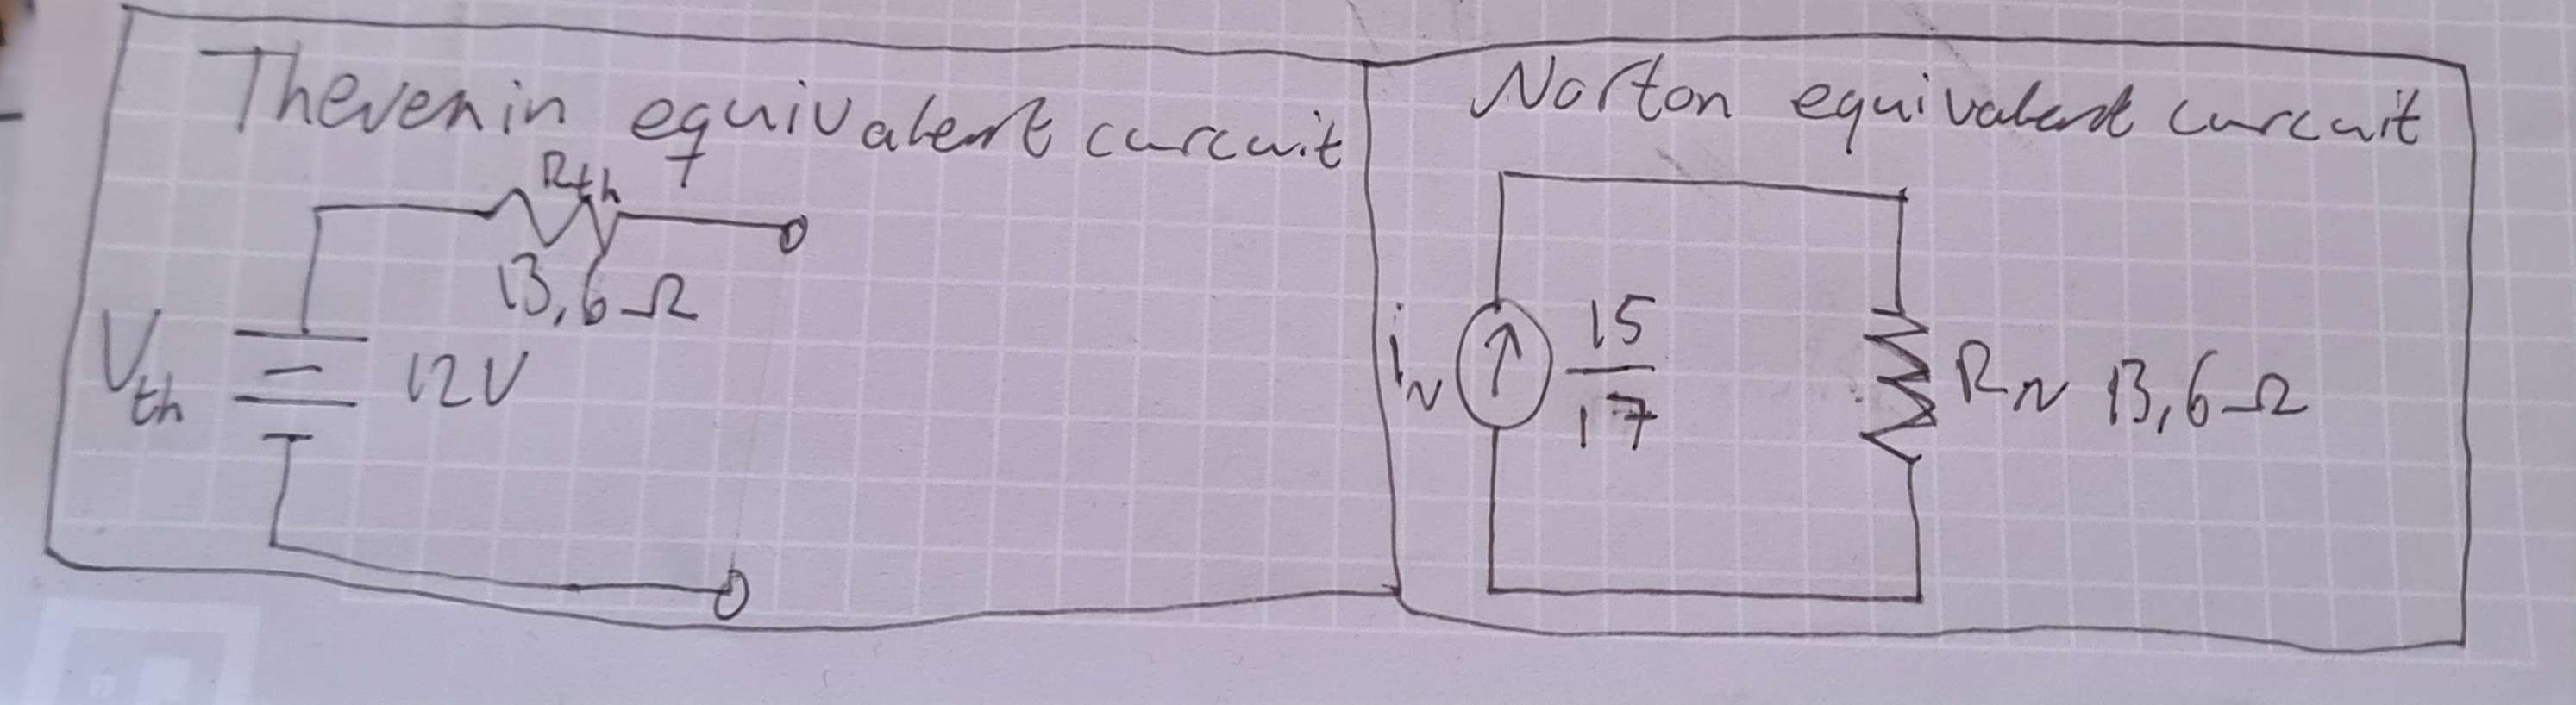 Thevenin equivalent curcuit
Rth
13,6Ω
Vth
12V
Norton equivalent curcuit
iN
15
17
RN 13,6Ω